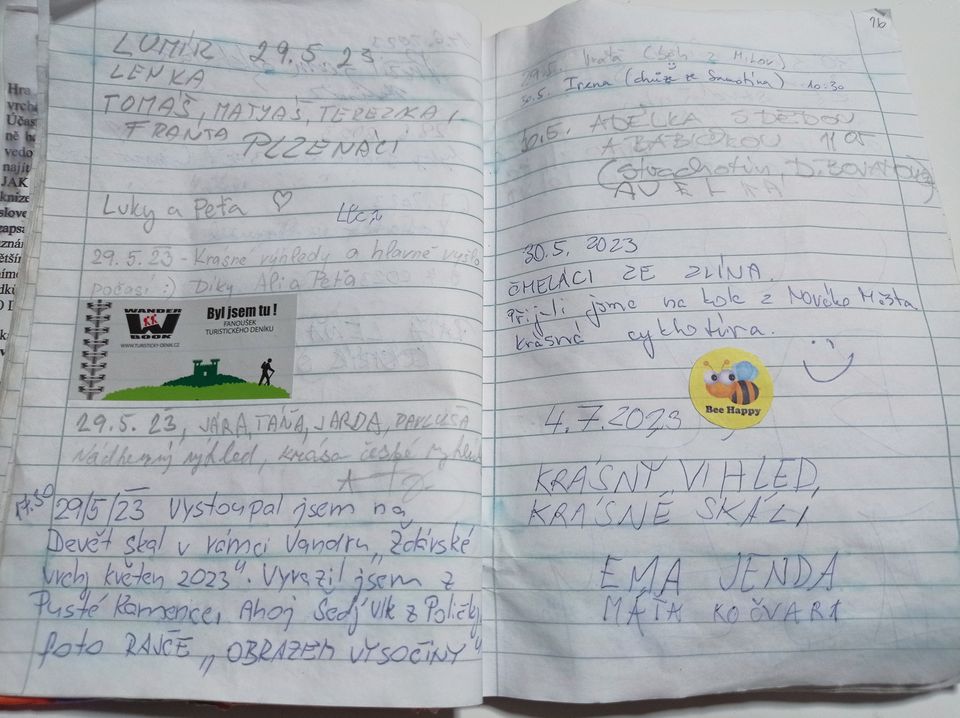 LUMÍR 29.5.23
LENKA
TOMAŠ, MATYAŠ, TEREZKA,
FRANTA PLZEŇÁCI
Luky a Peťa ♡
29.5.23 - Krásné výhledy a hlavně vyšlo
počasí :) Díky Ali a Peťa
WANDER
BOOK
WWW.TURISTICKY-DENIK.CZ
Byl jsem tu!
FANOUŠEK
TURISTICKÉHO DENÍKU
29.5. 23, JÁRA, TÁŇA, JARDA, PAVLUSA
Nádherný výhled, krása české
17.30 29/5/23 Vystoupal jsem na
Devět skal v rámci Vandru „Žďárské
vrchy květen 2023". Vyrazil jsem z
Pusté Kamenice, Ahoj Šedý vlk z Poličky
foto RAJČE „OBRAZEM VYSOČINY"
16
29.5.
30.5. Irena (chůze ze Samotína) 10:30
30.5. ADÉLKA S DĚDOU
A BABIČKOU 11 05
(Strachotín,
30.5. 2023
ČMELÁCI ZE ZLÍNA.
Přijeli jsme na kole z Nového Města
krásná cyklotúra.
Bee Happy
4.7.2023
KRÁSNÝ VIHLED,
KRÁSNÉ SKÁLI
EMA JENDA
MÁŤA KOČVARI